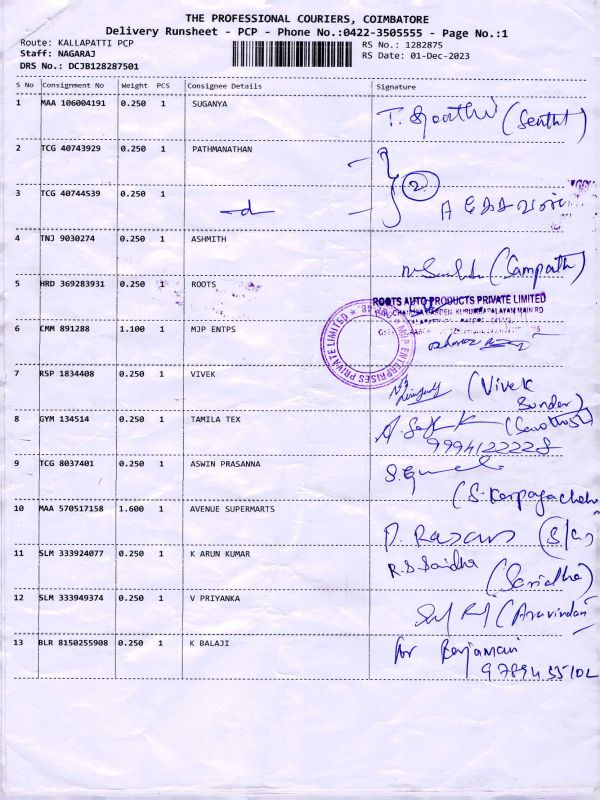 THE PROFESSIONAL COURIERS, COIMBATORE
Delivery Runsheet - PCP - Phone No.:0422-3505555 - Page No.:1
Route: KALLAPATTI PCP
RS No.: 1282875
Staff: NAGARAJ
RS Date: 01-Dec-2023
DRS No.: DCJB128287501
S No Consignment No Weight PCS Consignee Details Signature
1 MAA 106004191 0.250 1 SUGANYA
2 TCG 40743929 0.250 1 PATHMANATHAN
2
3 TCG 40744539 0.250 1
4 TNJ 9030274 0.250 1 ASHMITH
(Sampath)
5 HRD 369283931 0.250 1 ROOTS
ROOTS AUTO PRODUCTS PRIVATE LIMITED
MJP ENTERPRISES PRIVATE LIMITED
6 CMM 891288 1.100 1 MJP ENTPS
7 RSP 1834408 0.250 1 VIVEK
(Vivek
Sundar)
8 GYM 134514 0.250 1 TAMILA TEX
9994122228
9 TCG 8037401 0.250 1 ASWIN PRASANNA
10 MAA 570517158 1.600 1 AVENUE SUPERMARTS
11 SLM 333924077 0.250 1 K ARUN KUMAR
12 SLM 333949374 0.250 1 V PRIYANKA
(Aravindan)
13 BLR 8150255908 0.250 1 K BALAJI